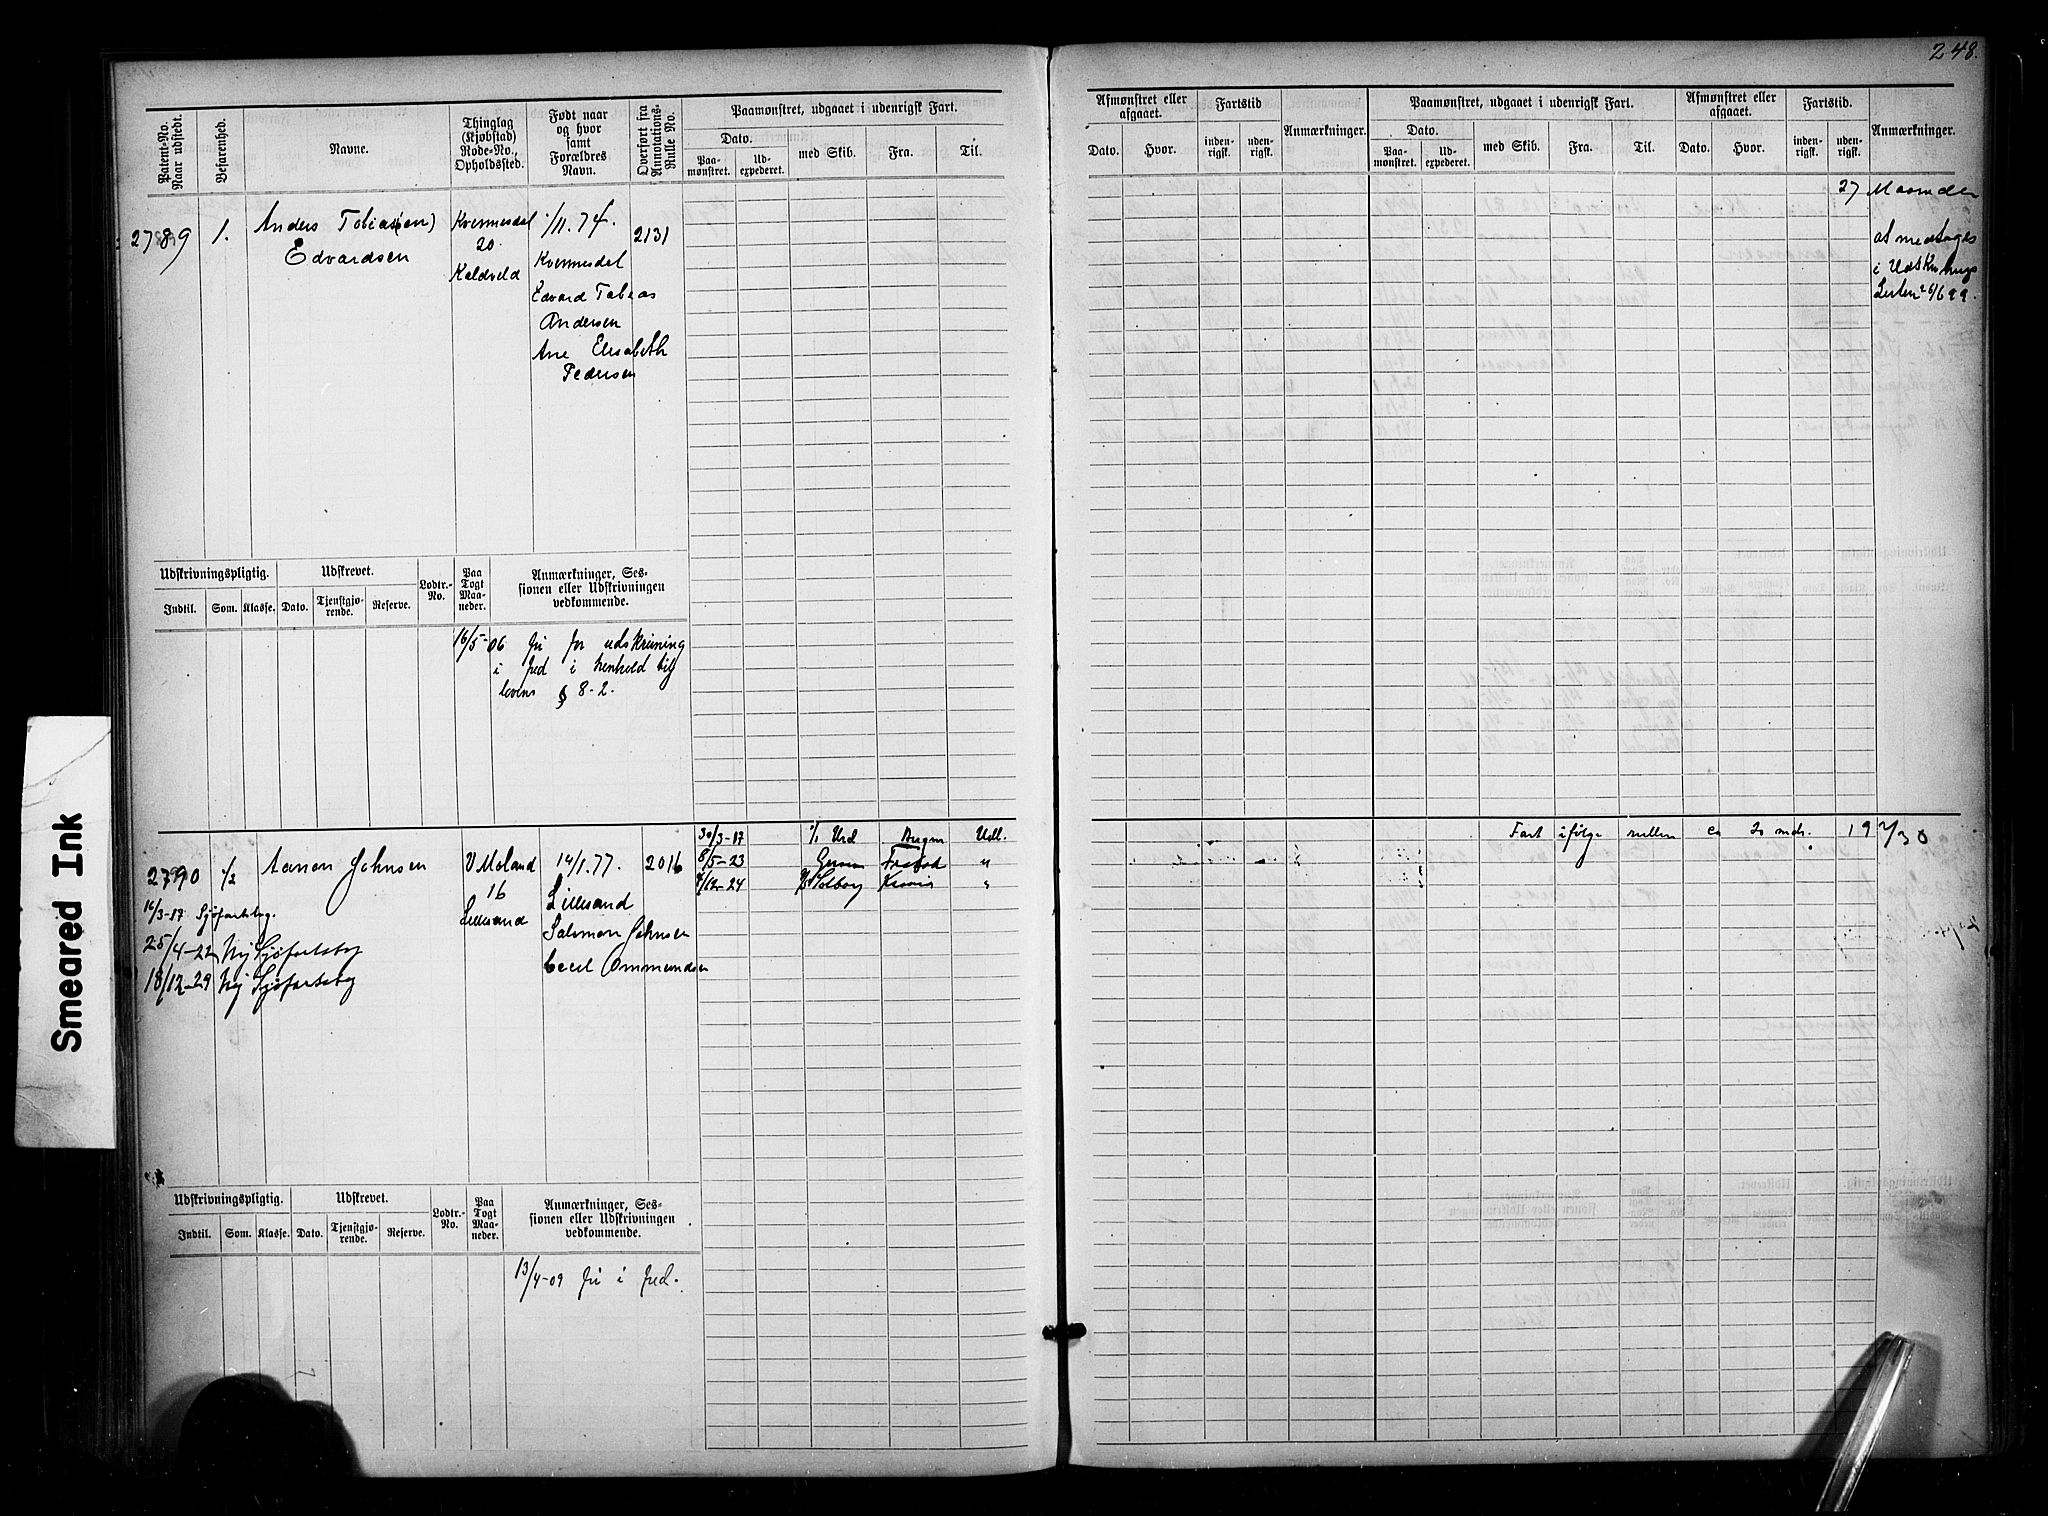 248.
Patent-No. Naar udstedt.
Befarenhed.
Navne.
Thinglag (Kjøbstad) Rode-No., Opholdssted.
Født naar og hvor samt Forældres Navn.
Overført fra Annotations-Rulle No.
Paamønstret, udgaaet i udenrigsk Fart.
Dato.
Paamønstret.
Udexpederet.
med Skib.
Fra.
Til.
Afmønstret eller afgaaet.
Dato.
Hvor.
Fartstid
indenrigsk.
udenrigsk.
Anmærkninger.
Paamønstret, udgaaet i udenrigsk Fart.
Dato.
Paamønstret.
Udexpederet.
med Skib.
Fra.
Til.
Afmønstret eller afgaaet.
Dato.
Hvor.
Fartstid.
indenrigsk.
udenrigsk.
Anmærkninger.
2789
1.
Anders Tobias(sen)
Edvardsen
Kvernesdal
20
Kaldveld
1/11.74.
Kvernesdal
Edvard Tobias
Andersen
Ane Elisabeth
Pedersen
2131
27 Maaneder
at medtages
i Udskrivnings
Listen 26/6 99.
Udskrivningspligtig.
Udskrevet.
Lodtr.-No.
Paa Togt Maaneder.
Anmærkninger, Sessionen eller Udskrivningen vedkommende.
Indtil.
Som.
Klasse.
Dato.
Tjenstgjørende.
Reserve.
16/5-06 fri for udskrivning
i fred i henhold til
lovens § 8-2.
2790
1/2
Aanon Johnsen
V Moland
16
Lillesand
14/1.77.
Lillesand
Salomon Johnsen
Cecil Ommundsen
2016
16/3-17 Sjøfartsbog.
25/4-22 Ny Sjøfartsbog
18/12-29 Ny Sjøfartsbog
30/3-17
Urd
Bergen
Udl.
8/5-23
"
/12-24
Solborg
"
Fart ifølge rullen ca 20 mdr.
19
/30
Udskrivningspligtig.
Udskrevet.
Lodtr.-No.
Paa Togt Maaneder.
Anmærkninger, Sessionen eller Udskrivningen vedkommende.
Indtil.
Som.
Klasse.
Dato.
Tjenstgjørende.
Reserve.
13/4-09 fri i fred.
Smeared Ink